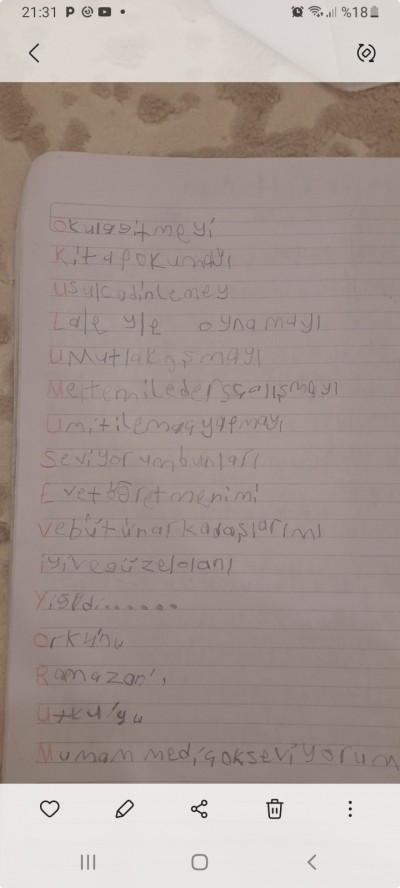 21:31
%18
okulagitmeyi
Kitapokumayı
usulcadinlemey
Lale yle oynamayı
uMutlakoşmayı
Meltemiledersçalışmayı
umitilemaçyapmayı
Seviyorumbunları
Evetöğretmenimi
vebütünarkadaşlarımı
iyivegüzelolanı
Yiğidi......
orkunu
Ramazanı
Utkuyu
Mumammediçokseviyorum